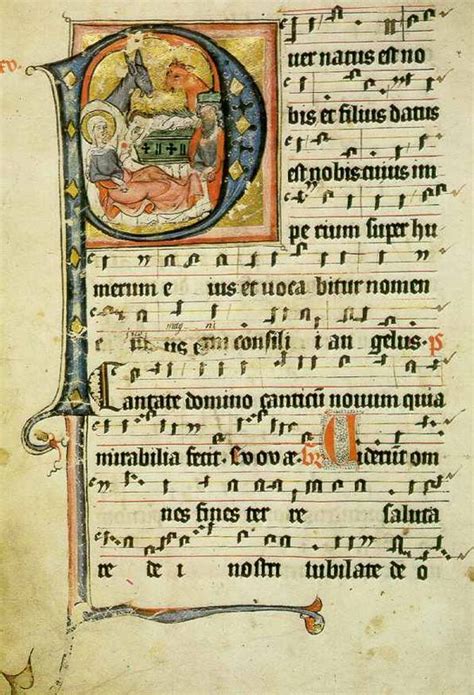 P uer natus est no
bis et filius datus
est nobis cuius im
pe rium super hu
merum e ius et uoca bitur nomen
e ius consili i an gelus. p
Cantate domino canticū nouum quia
mirabilia fecit. Euouae Viderūt om
nes fines ter re saluta
re de i nostri iubilate de o